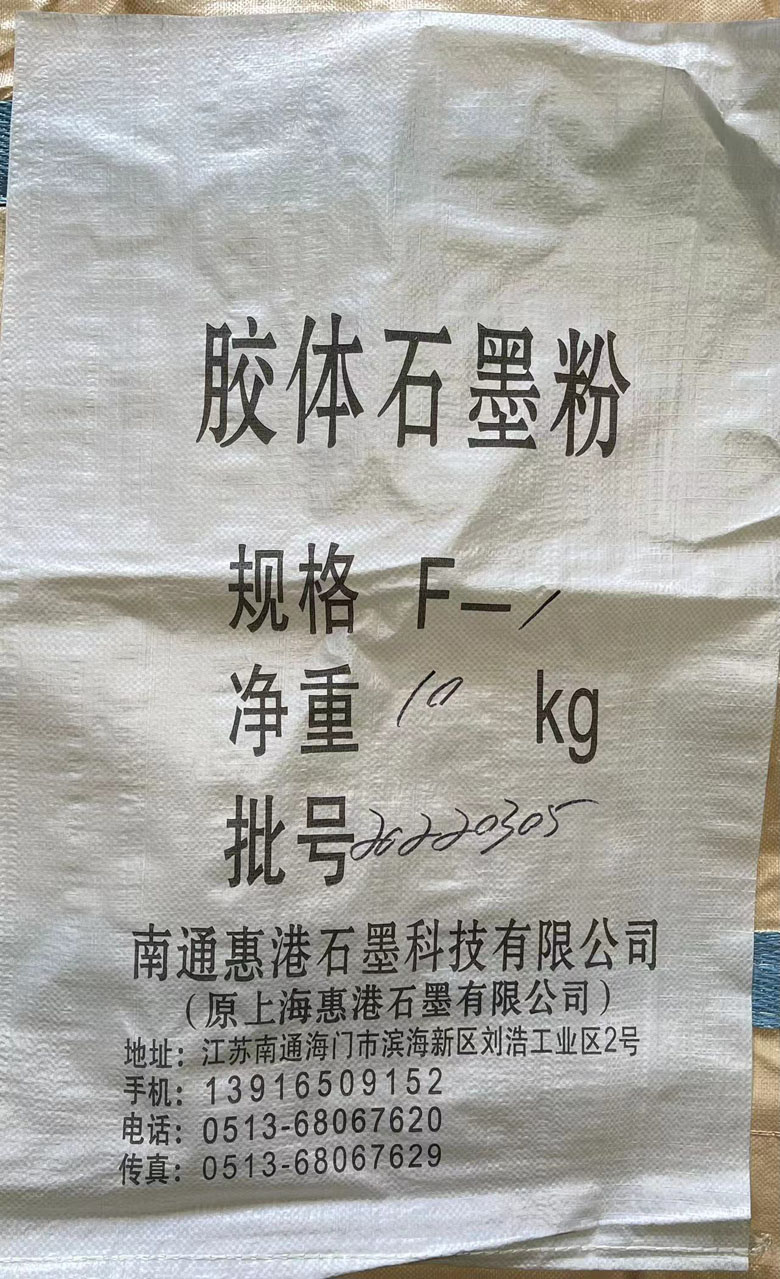 胶体石墨粉
规格 F-1
净重 10 kg
批号20220305
南通惠港石墨科技有限公司
(原上海惠港石墨有限公司)
地址：江苏南通海门市滨海新区刘浩工业区2号
手机：13916509152
电话：0513-68067620
传真：0513-68067629